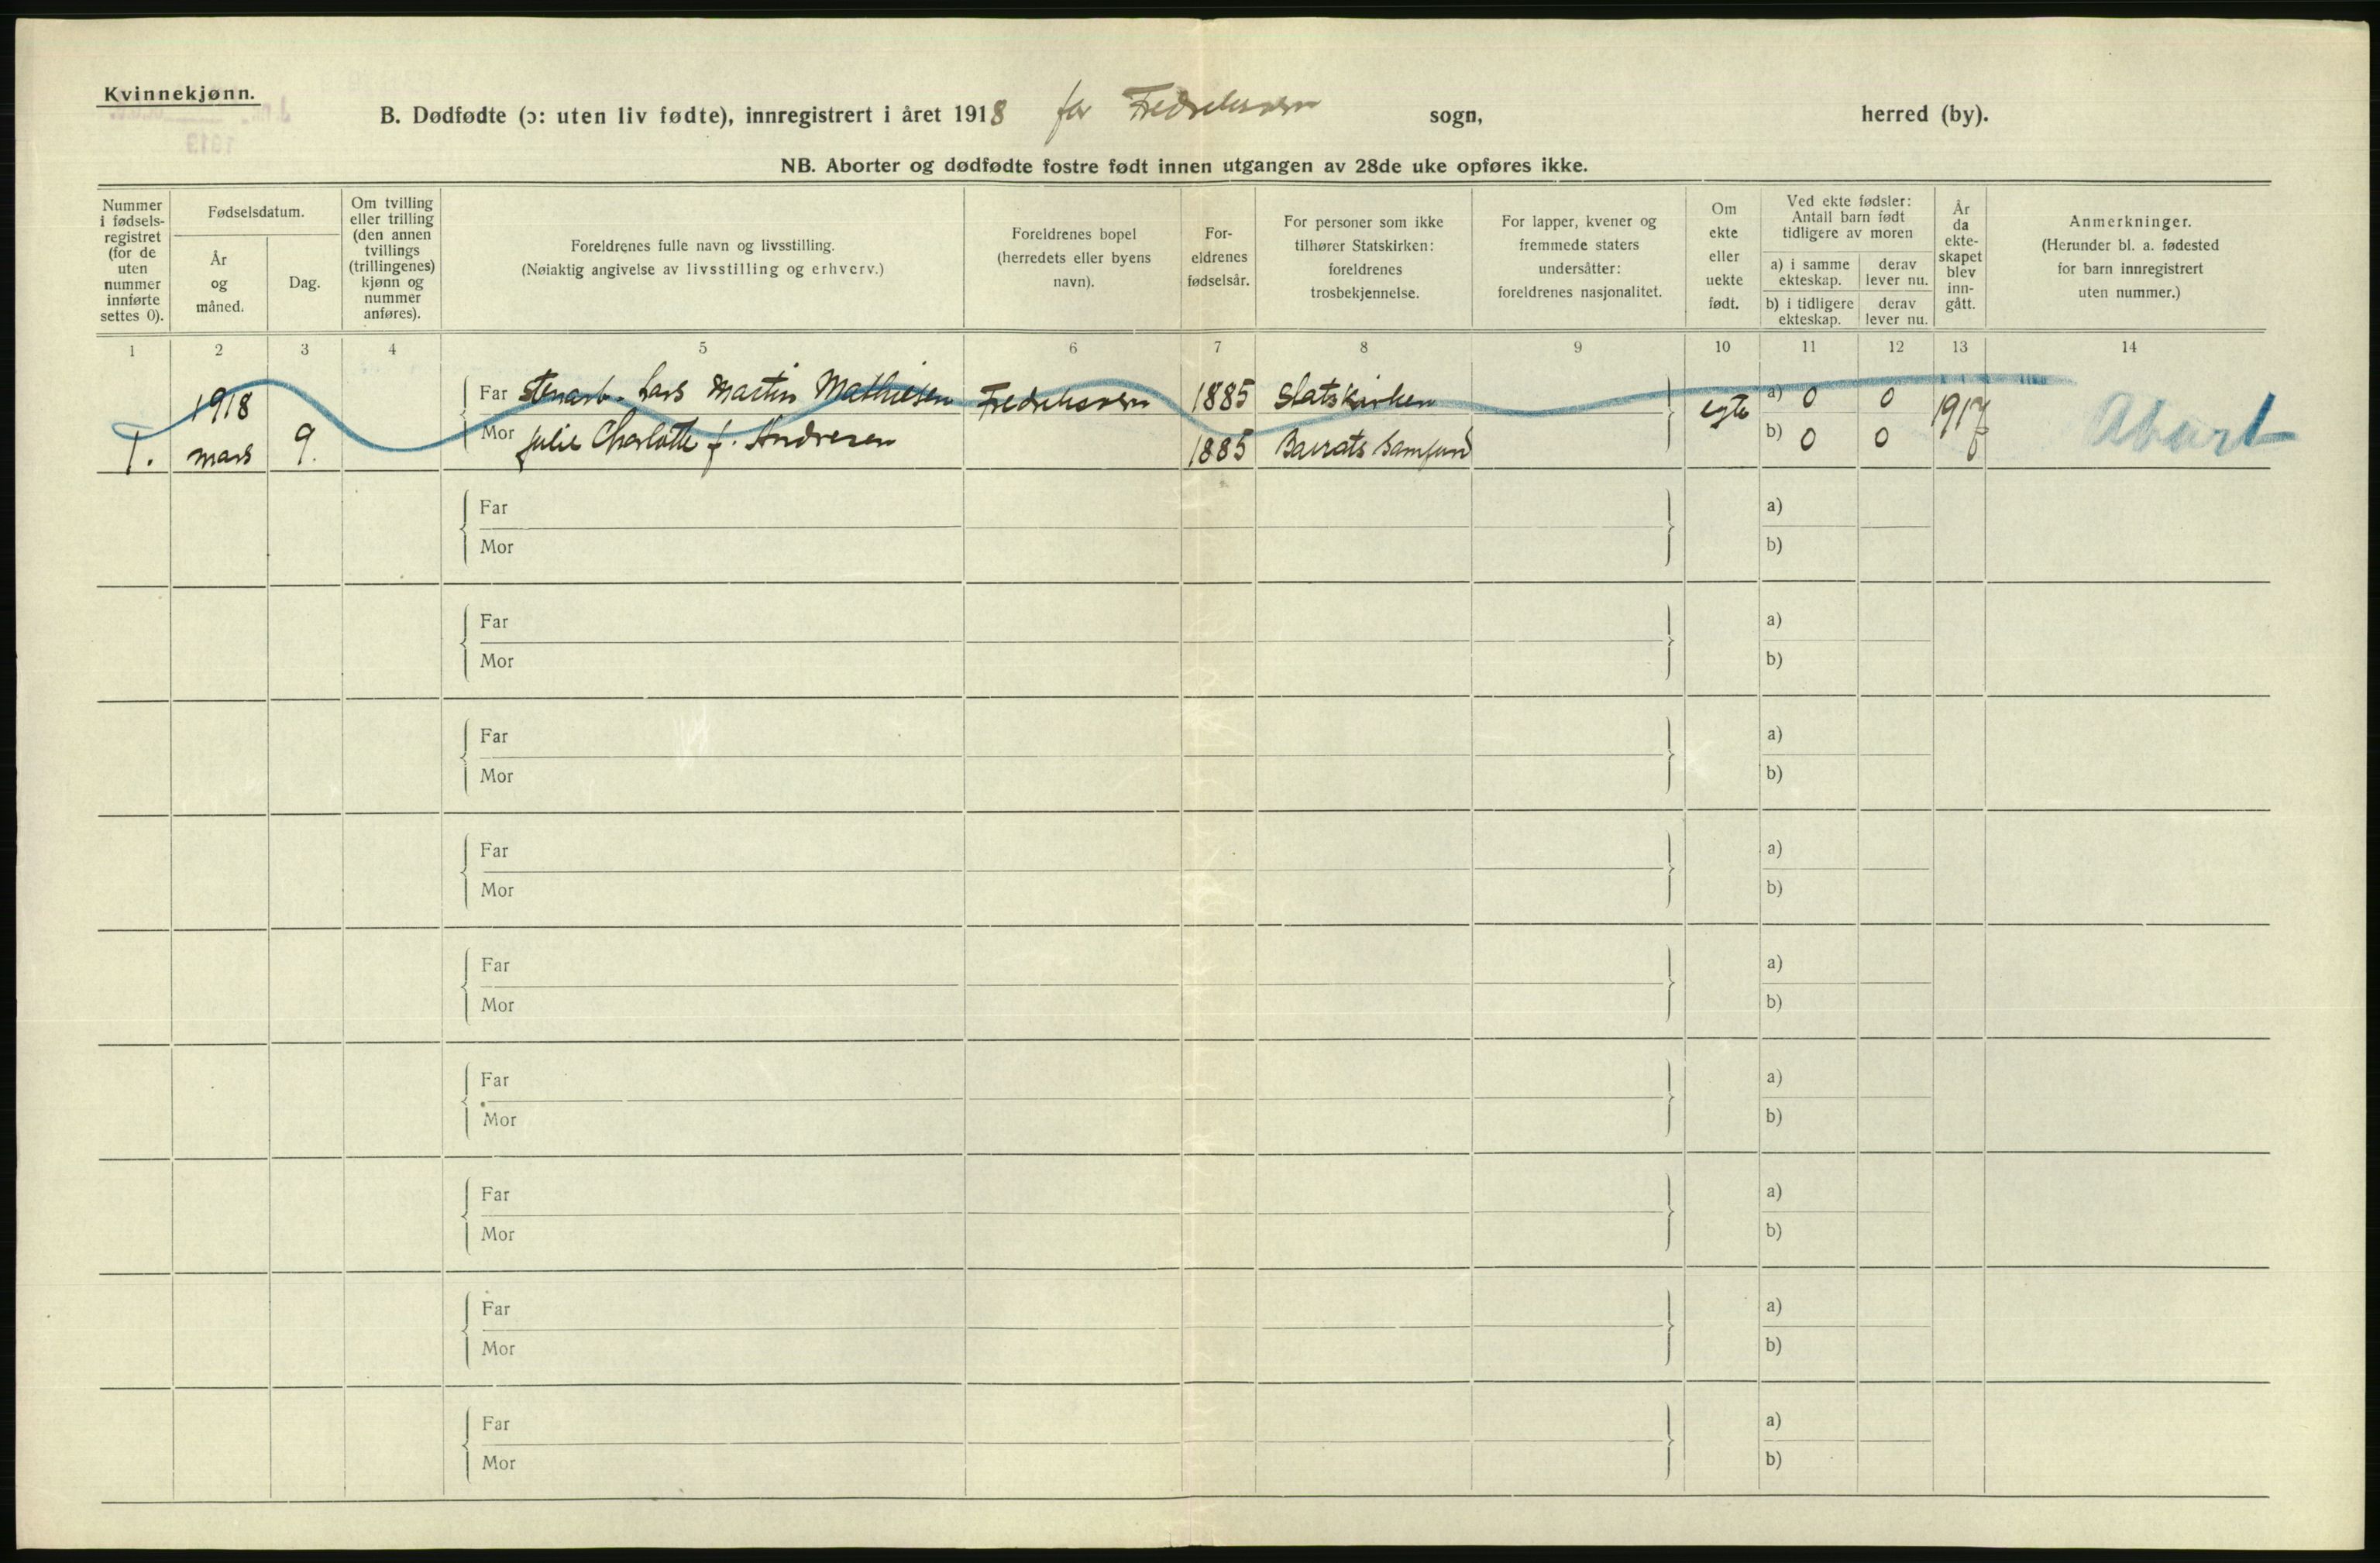 Kvinnekjønn.
B. Dødfødte (ɔ: uten liv fødte), innregistrert i året 1918 for Fredriksvern sogn, herred (by).
NB. Aborter og dødfødte fostre født innen utgangen av 28de uke opføres ikke.
Nummer i fødsels-registret (for de uten nummer innførte settes 0).
Fødselsdatum.
År og måned.
Dag.
Om tvilling eller trilling (den annen tvillings (trillingenes) kjønn og nummer anføres).
Foreldrenes fulle navn og livsstilling.
(Nøiaktig angivelse av livsstilling og erhverv.)
Foreldrenes bopel (herredets eller byens navn).
For-eldrenes fødselsår.
For personer som ikke tilhører Statskirken: foreldrenes trosbekjennelse.
For lapper, kvener og fremmede staters undersåtter: foreldrenes nasjonalitet.
Om ekte eller uekte født.
Ved ekte fødsler: Antall barn født tidligere av moren
a) i samme ekteskap.
derav lever nu.
b) i tidligere ekteskap.
derav lever nu.
År da ekte-skapet blev inn-gått.
Anmerkninger.
(Herunder bl. a. fødested for barn innregistrert uten nummer.)
1 2 3 4 5 6 7 8 9 10 11 12 13 14
1918
Far Stenarb. Lars Martin Mathiesen Fredriksvern 1885 Statskirken egte a) 0 0 1917 Abort
1. mars 9. Mor Julie Charlotte f. Andresen 1885 Samfund b) 0 0
Far a)
Mor b)
Far a)
Mor b)
Far a)
Mor b)
Far a)
Mor b)
Far a)
Mor b)
Far a)
Mor b)
Far a)
Mor b)
Far a)
Mor b)
Far a)
Mor b)